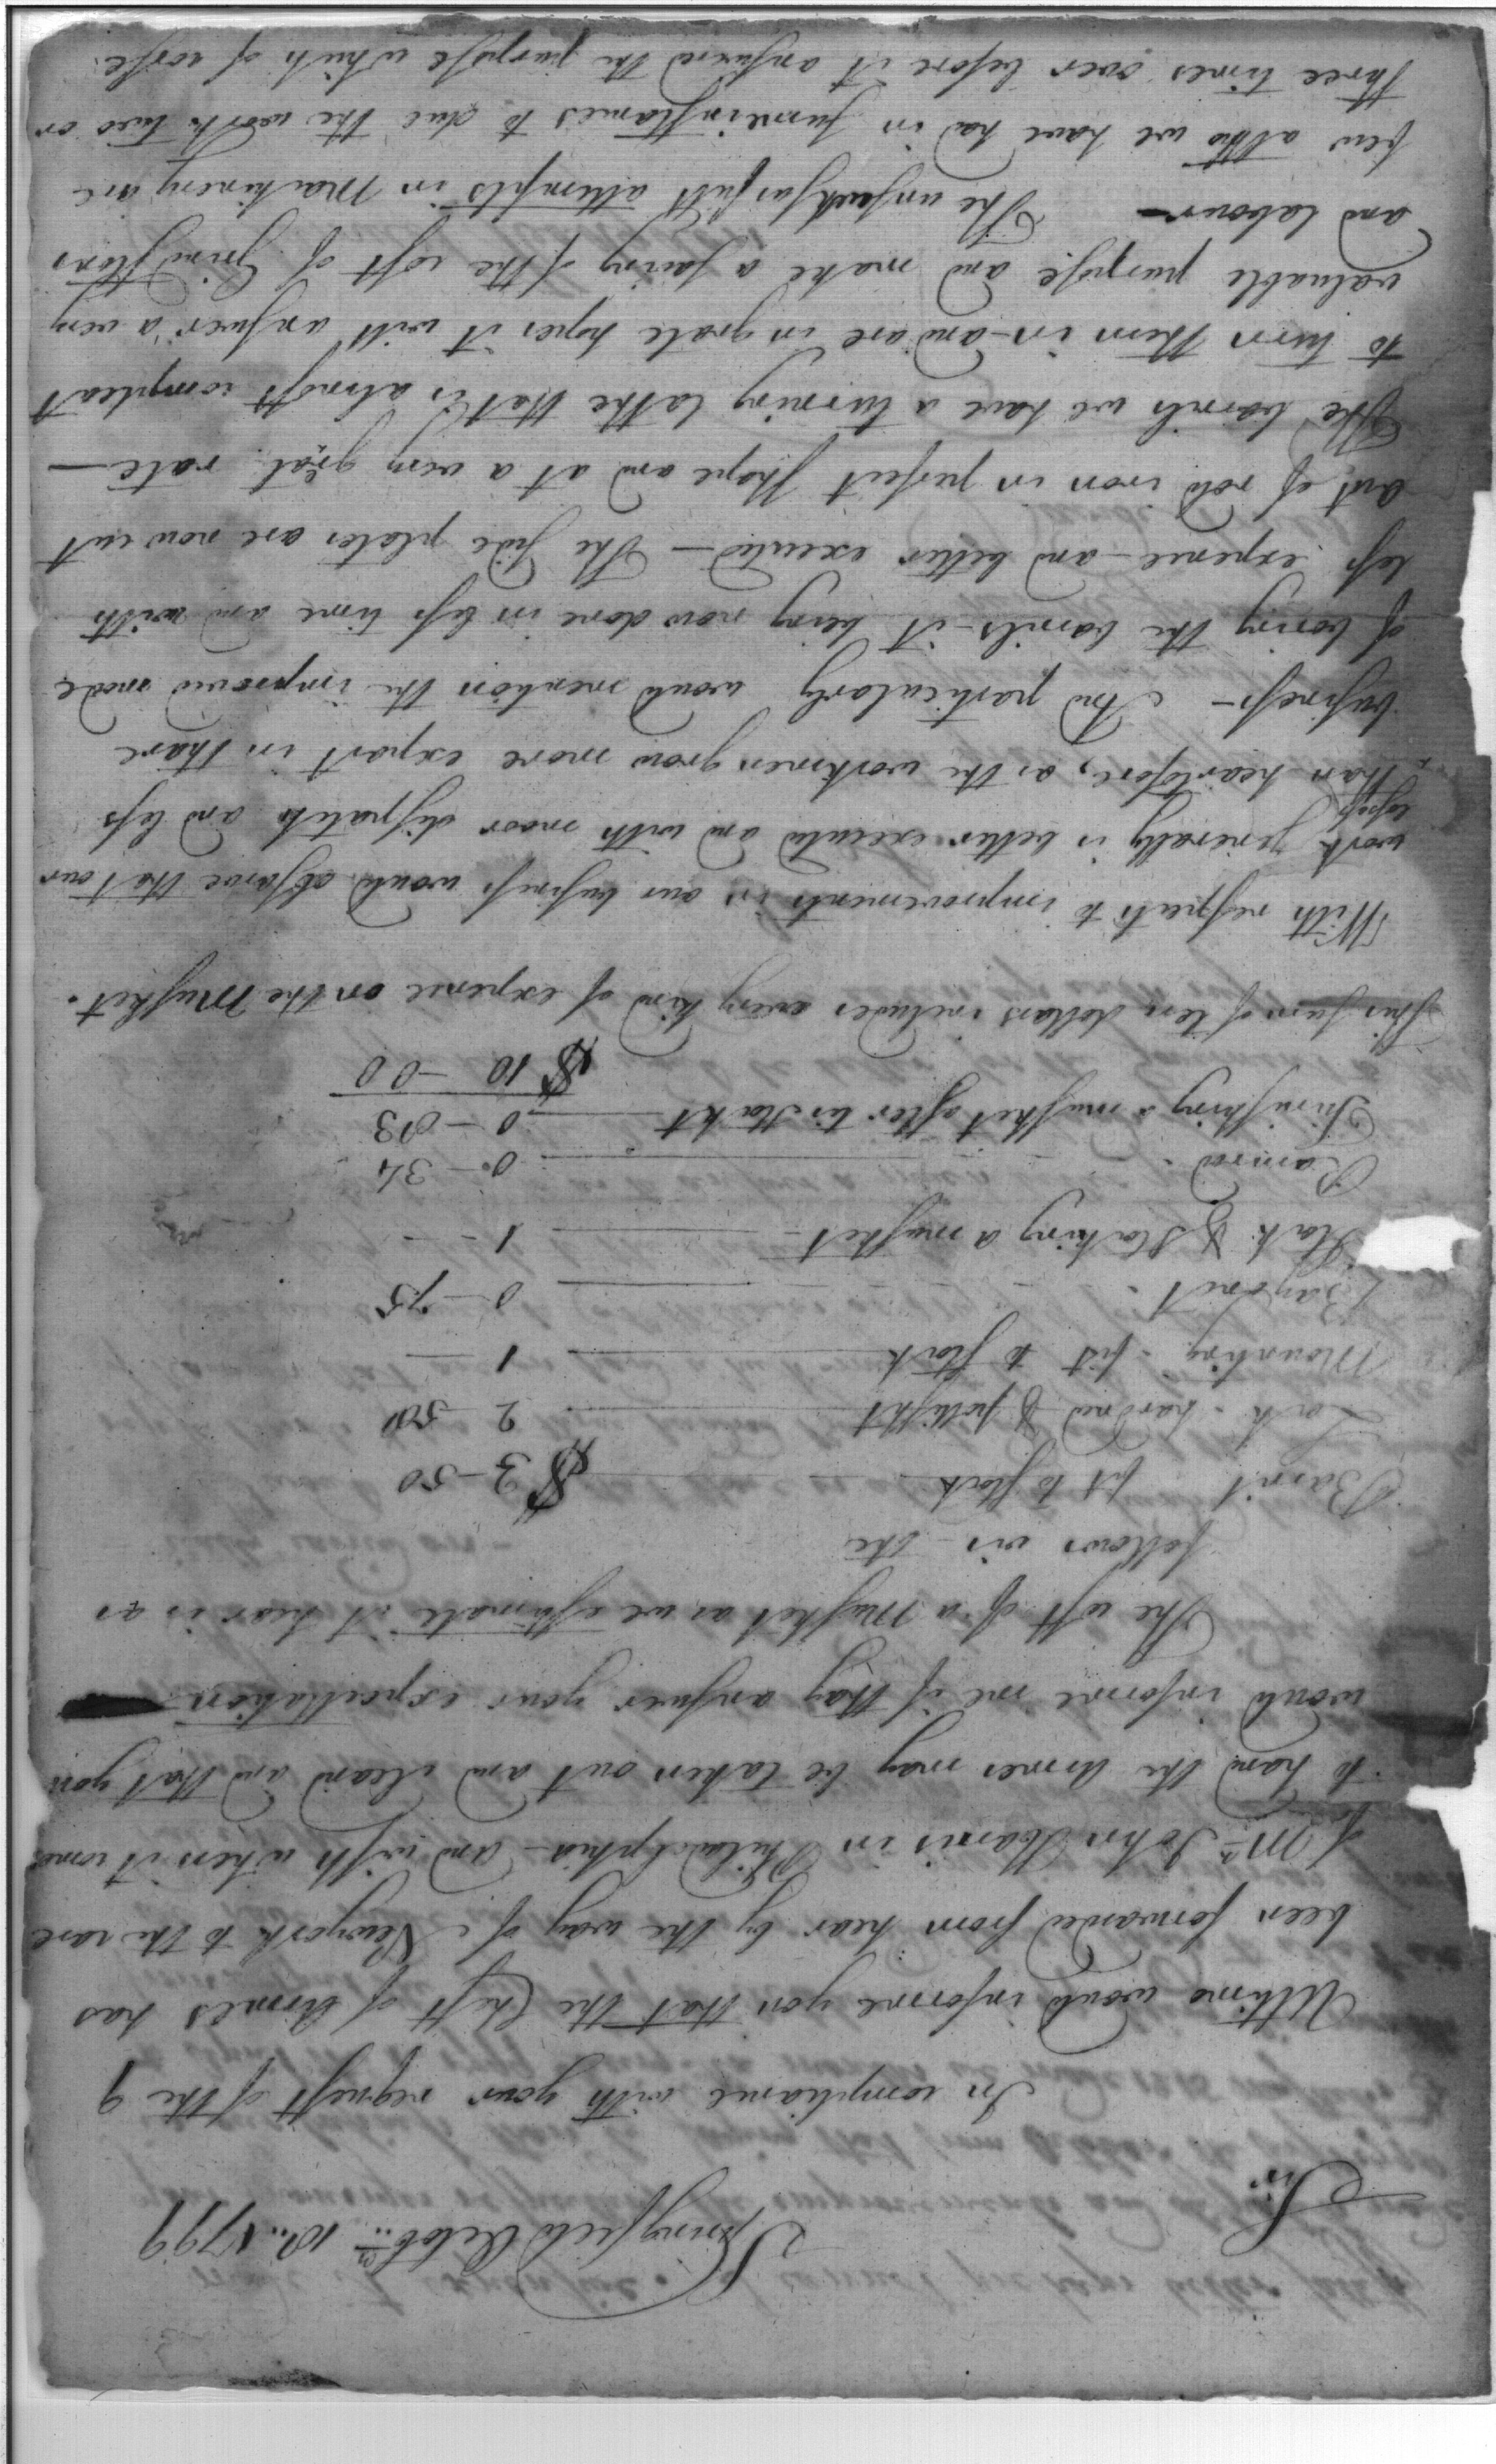 Springfield Octobr 10.. 1799
Sir
In compliance with your request of the 9
Ultimo would informe you that the Chest of Armes has
been forwarded from hear by the way of Newyork to the care
of Mr John Harris in Philadelphia - and wish when it comes
to hand the Armes may be taken out and cleand and that you
would informe me if thay answer your expecttation
The cost of a Musket as we estimate it hear is as
follows viz - the
Barril fit to stock $ 3-50
Lock - hardned & pollisht 2 50
Mounting - fit to stock 1 -
Bayonet - 0-75
Stock & Stocking a musket - 1 - -
Ramrod - 0-34
Finnishing a musket after tis stockt 0-93
$ 10-00
This sum of ten dollars includes every kind of expence on the Musket.
With respects to improvements in our business would observe that our
work generally is better executed and with moor dispatch and less
losses
than heartofore, as the workmen grow more expart in thare
business - And particularly would mention the improved mode
of boring the barrils - it being now done in less time and with
less expence - and better executed - The side plates are now cut
out of rold iron in perfect shape and at a very great rate -
The barrils we have a turning lathe that is almost compleat
to turn them in - and are in grate hopes it will answer a very
valuable purpose and make a saving of the cost of Grindstons
and labour - The unsuckcessfull attempts in Machinery are
few altho we have had in sume instances to due the work two or
three times over before it answered the purpose which of corse